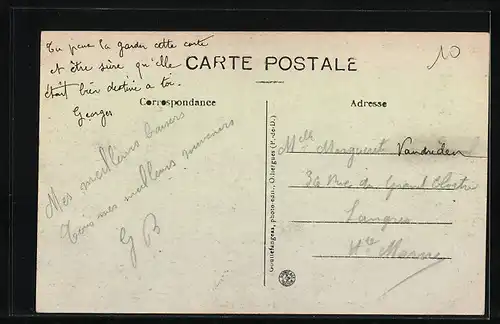 Tu peux la garder cette carte
et être sûre qu'elle
était bien destinée à toi.
Georges
10
CARTE POSTALE
Correspondance
Adresse
Mes meilleurs baisers
Tous mes meilleurs souvenirs
G B
Melle Marguerite Vandreden
36 Rue du Grand Cloître
Langres
Hte Marne
Gouttefangeas, photo-édit., Olliergues (P.-de-D.)